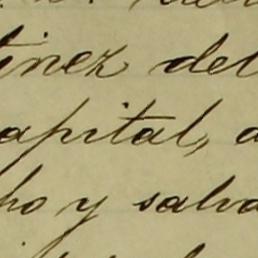 tinez del
apital, a
ho y salva